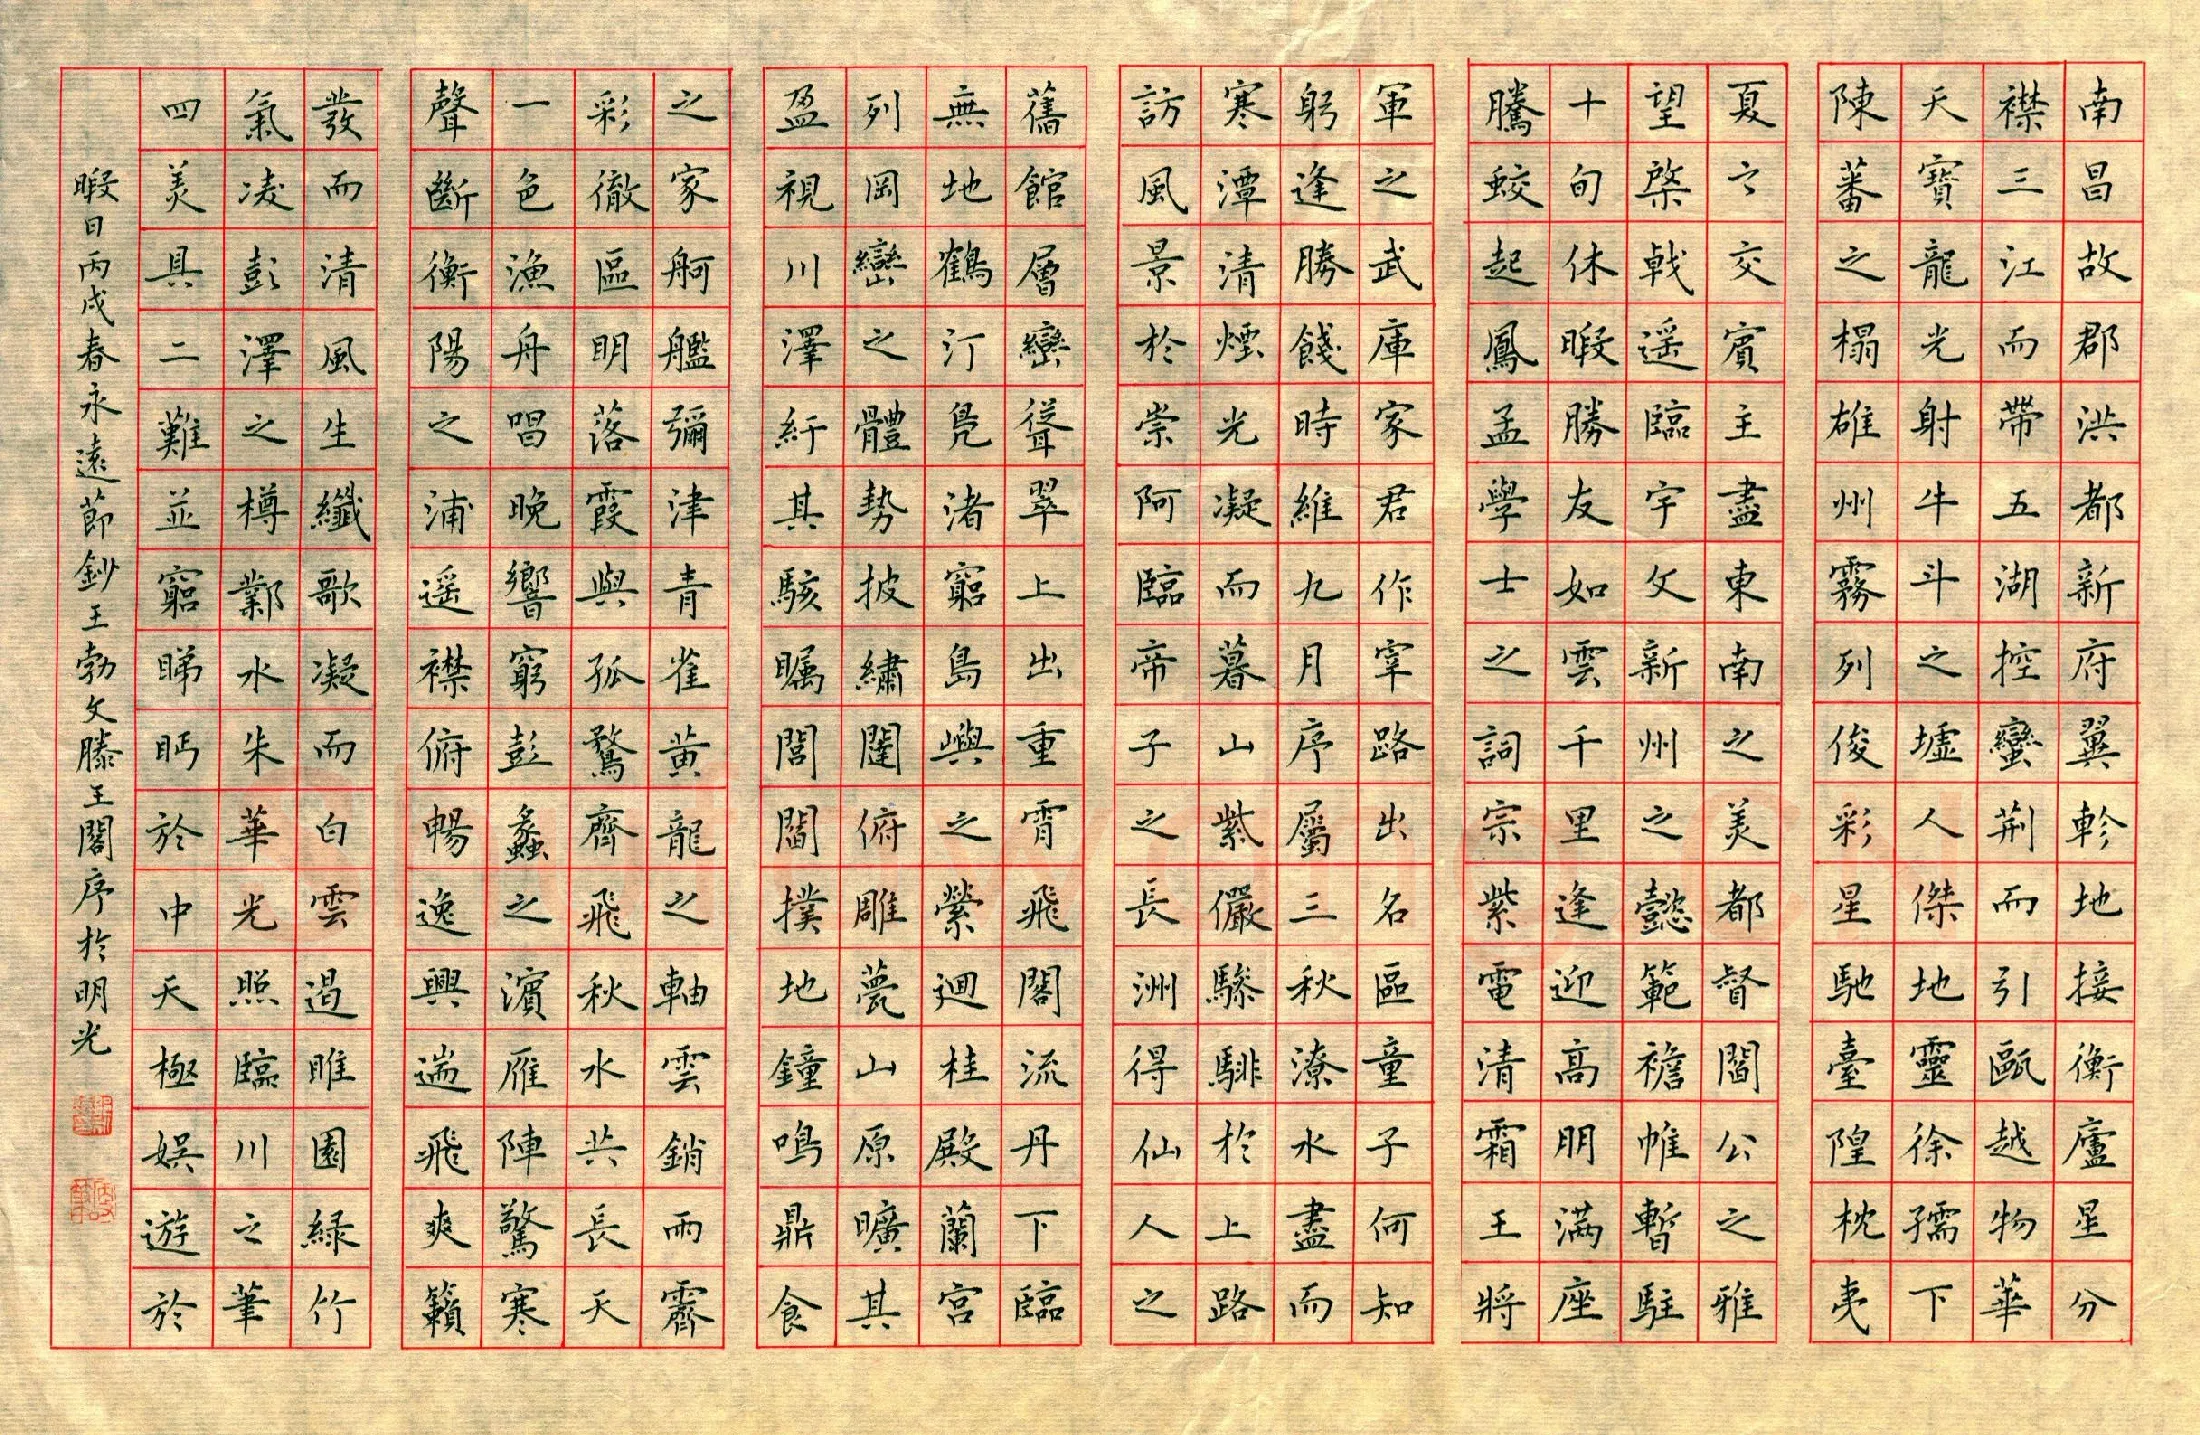 南昌故郡洪都新府翼軫地接衡廬星分
襟三江而帶五湖控蠻荆而引甌越物華
天寶龍光射牛斗之墟人傑地靈徐孺下
陳蕃之榻雄州霧列俊彩星馳臺隍枕夷
夏之交賓主盡東南之美都督閻公之雅
望棨戟遥臨宇文新州之懿範襜帷暫駐
十旬休暇勝友如雲千里逢迎高朋滿座
騰蛟起鳳孟學士之詞宗紫電清霜王將
軍之武庫家君作宰路出名區童子何知
躬逢勝餞時維九月序屬三秋潦水盡而
寒潭清煙光凝而暮山紫儼驂騑於上路
訪風景於崇阿臨帝子之長洲得仙人之
舊館層巒聳翠上出重霄飛閣流丹下臨
無地鶴汀鳧渚窮島嶼之縈迴桂殿蘭宮
列岡巒之體勢披繡闥俯雕甍山原曠其
盈視川澤紆其駭矚閭閻撲地鐘鳴鼎食
之家舸艦彌津青雀黄龍之軸雲銷雨霽
彩徹區明落霞與孤鶩齊飛秋水共長天
一色漁舟唱晚響窮彭蠡之濱雁陣驚寒
聲斷衡陽之浦遥襟俯暢逸興遄飛爽籟
發而清風生纖歌凝而白雲遏睢園緑竹
氣凌彭澤之樽鄴水朱華光照臨川之筆
四美具二難並窮睇眄於中天極娛遊於
暇日丙戌春永遠節鈔王勃文滕王閣序於明光